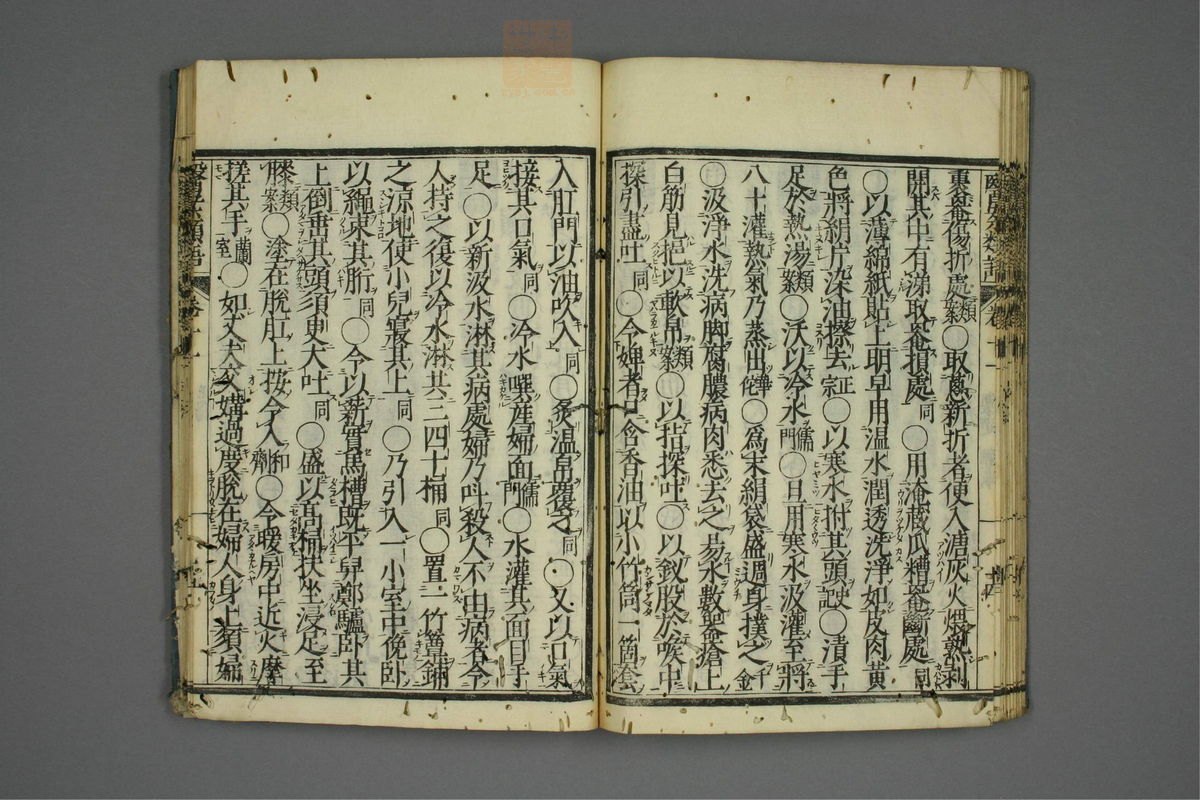 裹罨傷折處類案○取葱新折者便入溏灰火煨熟剥
開其中有涕取罨損處同○用淹蔵瓜糟罨斷處同
○以薄綿紙貼上明早用温水潤透洗淨如皮肉黄
色將絹片深油擦去正宗○以寒水拊其頭史記○漬手
足於熱湯類案○沃以冷水儒門○旦用寒水汲灌至將
八十灌熱氣乃蒸出華佗○爲末絹袋盛週身撲之千金
○汲淨水洗病脚腐膿病肉悉去之易水數器瘡上
白筋見挹以軟帛類案○以桔探吐○以釵股於喉中
探引盡吐同○令婢者口含香油以小竹筒一箇套
入肛門以油吹入同○炙温帛覆之同○又以口氣
接其口氣同○冷水噀産婦面儒門○水灌其面目手
足○以新汲水淋其病處婦乃吽殺人不由病者令
人持之復以冷水淋其三四十桶同○置一竹簟鋪
之涼地使小兒寢其上同○乃引入一小室中俛卧
以繩束其胻同○令以薪實馬槽既平舁鄭驢卧其
上倒垂其頭須臾大吐同○盛以髙桶扶坐浸足至
膝類案○塗在脱肛上按令入和齊○令暖房中近火摩
搓其手蘭室○如丈夫令媾過度脱在婦人身上須婦